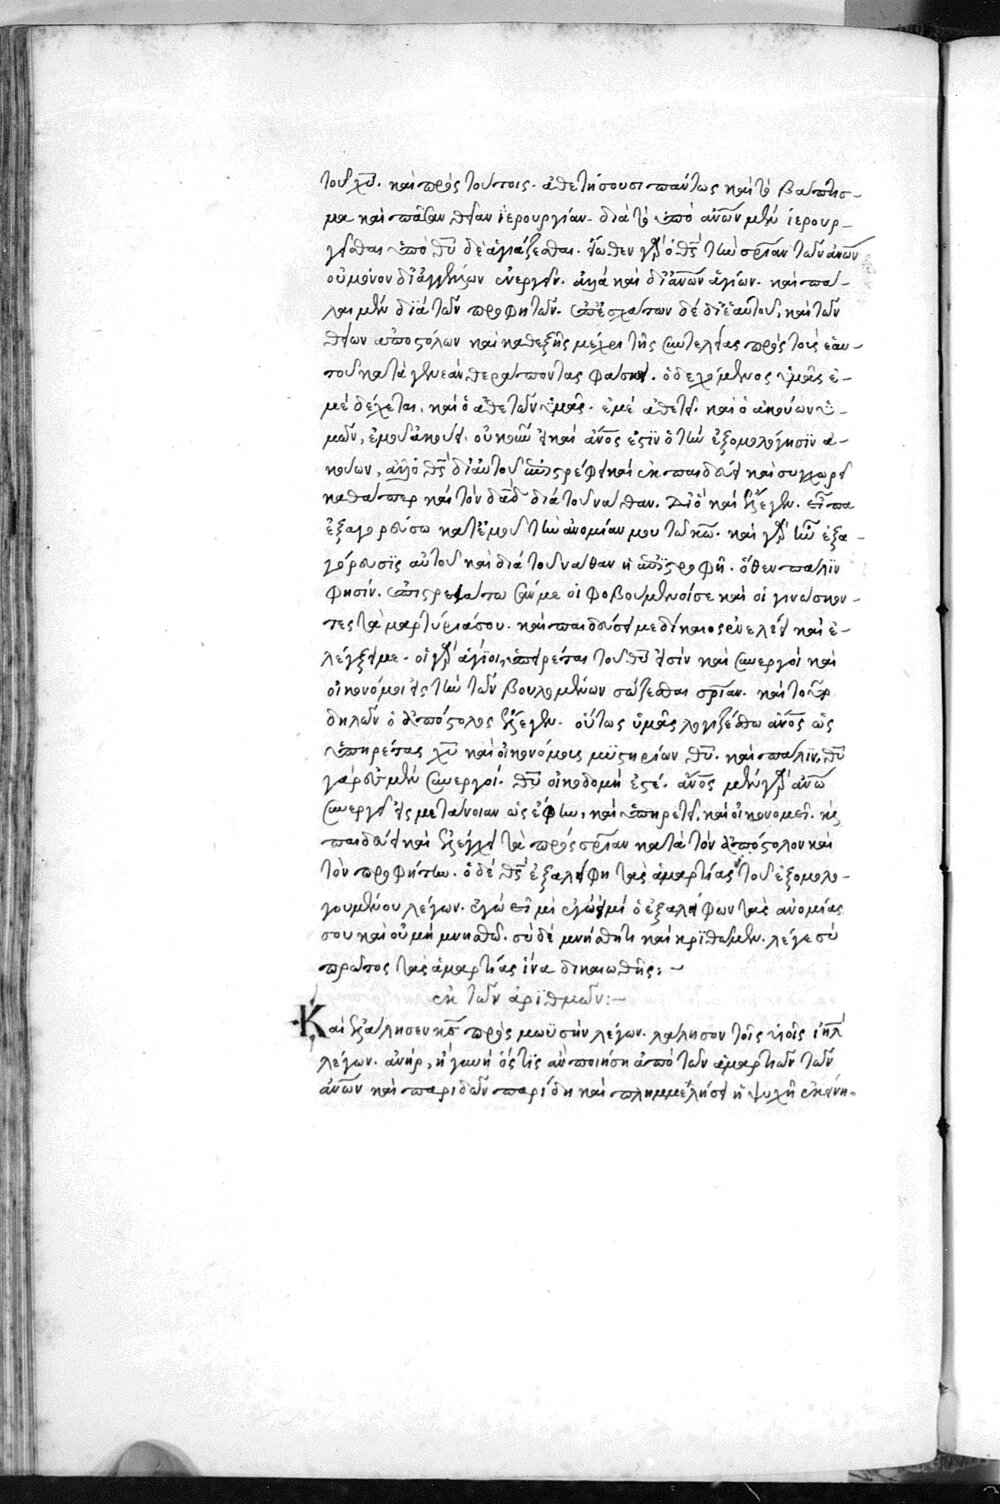 τοῦ χυ. καὶ πρὸς τούτοις. ἀθετήσουσι πάντως καὶ τὸ βάπτισ-
μα καὶ πᾶσαν θείαν ἱερουργίαν. διὰ τὸ ὑπὸ ἀνων μὲν ἱερουρ-
γεῖσθαι ὑπὸ θυ δὲ ἁγιάζεσθαι. εἴωθεν γὰρ ὁ θς τὴν σρίαν τῶν ἀνων
οὐ μόνον δι ἀγγέλων ἐνεργεῖν. ἀλλὰ καὶ δι ἀνων ἁγίων. καὶ πά-
λαι μὲν διὰ τῶν προφητῶν. ἐπ ἐσχάτων δὲ δι ἑαυτοῦ, καὶ τῶν
θείων ἀποστόλων καὶ καθεξῆς μέχρι τῆς συντελείας πρὸς τοὺς ἑαυ-
τοῦ κατὰ γενεὰν θεράποντας φάσκει. ὁ δεχόμενος ὑμᾶς ἐ-
μὲ δέχεται. καὶ ὁ ἀθετῶν ὑμᾶς. ἐμὲ ἀθετεῖ. καὶ ὁ ἀκούων ὑ-
μῶν, ἐμοῦ ἀκούει. οὐκοῦν εἰ καὶ ἀνος ἐστὶν ὁ τὴν ἐξομολόγησιν ἀ-
κούων, ἀλλ ὁ θς δι αὐτοῦ ἐπιστρέφει καὶ ἐκπαιδεύει καὶ συγχωρεῖ
καθάπερ καὶ τὸν δαδ διὰ τοῦ νάθαν. Διὸ καὶ ἔλεγεν. εἶπα
ἐξαγορεύσω κατ ἐμοῦ τὴν ἀνομίαν μου τῷ κω. καὶ γὰρ ἦν ἐξα-
γόρευσις αὐτοῦ καὶ διὰ τοῦ νάθαν ἡ ἐπιστροφή. ὅθεν πάλιν
φησίν. ἐπιστρεψάτωσάν με οἱ φοβούμενοί σε καὶ οἱ γινώσκον-
τες τὰ μαρτύριά σου. καὶ παιδεύσει με δίκαιος ἐν ἐλέει καὶ ἐ-
λέγξει με. οἱ γὰρ ἅγιοι, ὑπηρέται τοῦ θυ εἰσὶν καὶ συνεργοὶ καὶ
οἰκονόμοι εἰς τὴν τῶν βουλομένων σώζεσθαι σρίαν. καὶ τοῦτο
δηλῶν ὁ ἀπόστολος ἔλεγεν. οὕτως ὑμᾶς λογιζέσθω ἀνος ὡς
ὑπηρέτας χυ καὶ οἰκονόμους μυστηρίων θυ. καὶ πάλιν, θυ
γάρ ἐσμεν συνεργοί. θυ οἰκοδομή ἐστε. ἀνος μὲν γὰρ ἀνω
συνεργεῖ εἰς μετάνοιαν ὡς ἔφην, καὶ ὑπηρετεῖ, καὶ οἰκονομεῖ. καὶ
παιδεύει καὶ ἐλέγχει τὰ πρὸς σρίαν κατὰ τὸν ἀπόστολον καὶ
τὸν προφήτην. ὁ δὲ θς ἐξαλείφη τὰς ἁμαρτίας τοῦ ἐξομολο-
γουμένου λέγων. ἐγώ εἰμι ἐγώ εἰμί ὁ ἐξαλείφων τὰς ἀνομίας
σου καὶ οὐ μὴ μνησθῶ. σὺ δὲ μνήσθητι καὶ κριθῶμεν. λέγε σὺ
πρῶτος τὰς ἁμαρτίας ἵνα δικαιωθῇς:~
ἐκ τῶν ἀριθμῶν:~
Καὶ ἐλάλησεν κς πρὸς μωϋσὴν λέγων. λάλησον τοῖς υἱοῖς ιηλ
λέγων. ἀνήρ, ἢ γυνὴ ὅστις ἂν ποιήση ἀπὸ τῶν ἁμαρτιῶν τῶν
ἀνων καὶ παριδὼν παρίδη καὶ πλημμελήσει ἡ ψυχὴ ἐκείνη.